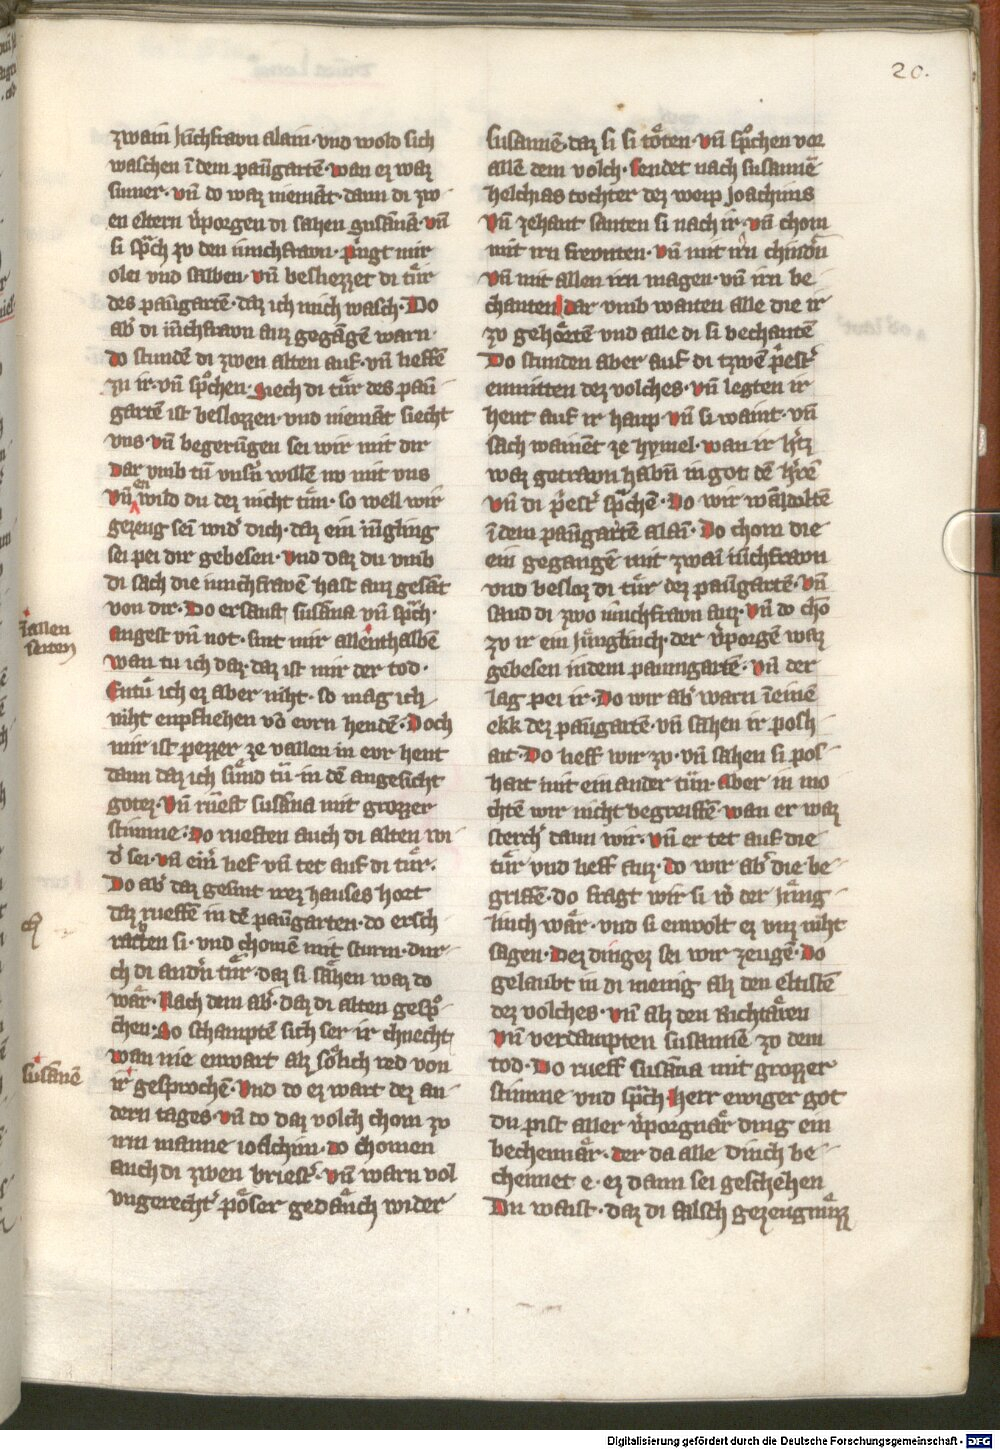 20.
zwain iůchfravn alain · vnd wold sich
waschen ī dem paūgartē · wan ez waz
sumer · vn̄ do waz niemāt · dann di zw-
en eltern v̉porgen di sahen susānā · vn̄
si sp̄ch zv den iunchfravn · pringt mir
olei vnd salben · vn̄ besliezzet di tůr
des paūgartē · daz ich mich wasch · Do
ab̉ di iūchfravn auz gegāgē warn ·
do stundē di zwen alten auf · vn̄ lieffē
zu ir · vn̄ sp̊chen · Siech di tůr des paū
gartē ist beslozzen · vnd niemāt siecht
vns · vn̄ begerūgen sei wir mit dir
Dar vmb tů vnsn̉ willē nv mit vns
Vn̄ en wild du dez nicht tůn · so well wir
gezeug sein wid̉ dich · daz ein iūgling
sei pei dir gebesen · vnd daz du vmb
di sach die iunchfravē hast auz gesāt
von dir · Do ersauft susāna vn̄ sp̄ch ·
Angest vn̄ not · sint mir allenthalbē
ī allen
seiten
wan tu ich daz · daz ist mir der tod ·
Entů ich ez aber niht · so mag ich
niht enpfliehen vō evrn hendē · Doch
mir ist pezzer ze vallen in evr hent
dann daz ich sůnd tů · in dē angesicht
gotez · Vn̄ růeft susāna mit grozzer
stimme · Do rueften auch di alten wi
d̉ sei · vn̄ ein̉ lief vn̄ tet auf di tůr ·
Do ab̉ daz gesint dez hauses hort
daz rueffē in dē paūgarten · do ersch
rakten si · vnd chomē mit sturm · dur-
ch di andn̉ tůr · daz si sähen waz do
wär · Nach dem ab̉ · daz di alten gesp̊-
chen · So schamptē sich ser ir chnecht
wan nie enwart alz sölich red von
susānē
ir gesprochē · Vnd do ez wart dez an-
dern tages · vn̄ do daz volch chom zv
irm manne ioachim · do chomen
auch di zwen briest̉ · vn̄ warn vol
vngerecht̉ pöser gedäuch wider
susannē · daz si si tötten · vn̄ sp̊chen vor
allē dem volch · Sendet nach susannē
helchias tochter dez weip Joachims
Vn̄ zehant santen si nach ir · vn̄ chom
mit irn frevnten · vn̄ mit irn chindn̉
vn̄ mit allen irn magen · vn̄ irn be-
chanten Dar vmb wainten alle die ir
zv gehörtē vnd alle di si bechantē
Do stunden aber auf di tzwē p̉est̉
enmitten dez volches · vn̄ legten ir
hent auf ir haup · vn̄ si waint · vn̄
sach wainēt ze hymel · wan ir h̉tz
waz getrawn habn̄ in got dē h̉rē
vn̄ di p̉est̉ sp̄chē · Do wir wādoltē
ī dem paūgartē alain̄ · Do chom die
ein gegangē mit zwai iūchfravn
vnd besloz di tůr dez paūgartē · vn̄
sand di zwo iūnchfravn auz · Vn̄ do chō
zv ir ein jūnglinch · der v̉porgē waz
gebesen in dem paumgartē · vn̄ der
lag pei ir · Do wir ab̉ warn ī einē
ekk dez paūgartē · vn̄ sahen ir posh
ait · Do lieff wir zv · vn̄ sahen si pos-
hait mit ein ander tůn · Aber in mo
chtē wir nicht begreiffē · wan er waz
sterch̉ dann wir · vn̄ er tet auf die
tůr vnd lieff auz · do wir ab̉ die be-
griffē · do fragt wir si w̉ der jūng-
linch wär · vnd si enwolt ez vnz niht
sagen · Dez dingez sei wir zeugē · Do
gelaubt in di menig alz den eltistē
dez volches · vn̄ alz den Richtärn
Vn̄ verdampten susannē zv dem
tod · Do rueff susāna mit grozzer
stimme vnd sp̄ch · Herr ewiger got
du pist aller v̉porgnär ding ein
bechennär · der da alle dinch be-
chennet e · ez dann sei geschehen
Du waist · daz di falsch gezeugnůzz
Digitalisierung gefördert durch die Deutsche Forschungsgemeinschaft - DFG